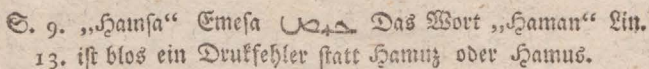 S. 9. „Hamsa“ Emesa حمص Das Wort „Haman“ Lin.
13. ist blos ein Drukfehler statt Hamuz oder Hamus.